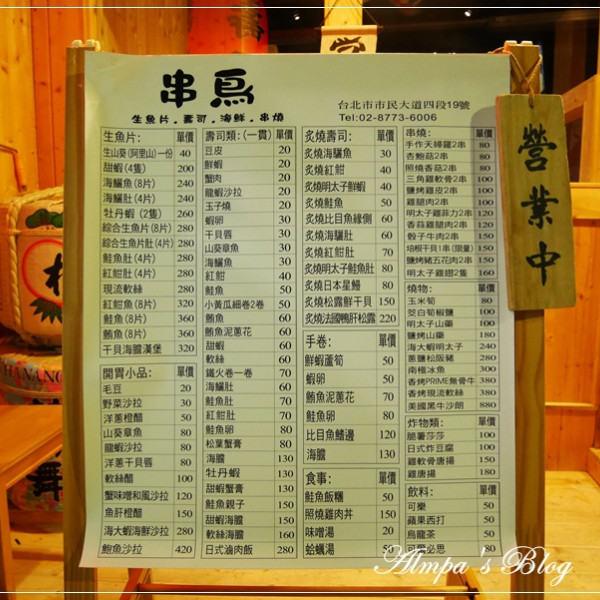 串鳥
生魚片.壽司.海鮮.串燒
台北市市民大道四段19號
Tel:02-8773-6006
生魚片: 單價
生山葵(阿里山)一份 40
甜蝦(4隻) 200
海鱺魚(8片) 240
海鱺肚(4片) 240
牡丹蝦(2隻) 260
綜合生魚片(8片) 280
綜合生魚片肚(4片) 280
鮭魚肚(4片) 280
紅魽肚(4片) 280
現流軟絲 280
紅魽魚(8片) 320
鮭魚(8片) 360
鮪魚(8片) 360
干貝海膽漢堡 320
開胃小品: 單價
毛豆 20
野菜沙拉 30
洋蔥橙醋 50
山葵章魚 80
龍蝦沙拉 80
洋蔥干貝唇 80
軟絲醋 100
蟹味噌和風沙拉 120
魚肝橙醋 150
海大蝦海鮮沙拉 280
鮑魚沙拉 420
壽司類:(一貫) 單價
豆皮 20
鮮蝦 20
蟹肉 20
龍蝦沙拉 20
玉子燒 20
蝦卵 30
干貝唇 30
山葵章魚 30
海鱺魚 30
紅魽 40
鮭魚 50
小黃瓜細卷2卷 50
鮪魚 60
鮪魚泥蔥花 60
甜蝦 60
軟絲 60
鐵火卷一卷 70
海鱺肚 60
鮭魚肚 70
紅魽肚 70
鮭魚卵 80
松葉蟹膏 80
海膽 130
牡丹蝦 130
甜蝦蟹膏 130
鮭魚親子 150
甜蝦海膽 150
軟絲海膽 160
日式滷肉飯 280
炙燒壽司: 單價
炙燒海鱺魚 30
炙燒紅魽 40
炙燒明太子鮮蝦 40
炙燒鮭魚 50
炙燒比目魚緣側 60
炙燒海鱺肚 60
炙燒紅魽肚 70
炙燒明太子鮭魚肚 80
炙燒日本星鰻 80
炙燒松露鮮干貝 150
炙燒法國鴨肝松露 220
手卷: 單價
鮮蝦蘆筍 50
蝦卵 50
鮪魚泥蔥花 70
鮭魚卵 80
比目魚鰭邊 120
海膽 130
食事: 單價
鮭魚飯糰 50
照燒雞肉丼 150
味噌湯 20
蛤蠣湯 50
串燒: 單價
手作天婦羅2串 80
杏鮑菇2串 80
照燒香菇2串 80
三角雞軟骨2串 100
鹽烤雞皮2串 100
雞腿肉2串 100
明太子雞菲力2串 120
香蒜雞腿肉2串 120
骰子牛肉2串 150
培根干貝1串(限量) 150
鹽烤豬五花肉2串 150
明太子雞翅2隻 160
燒物: 單價
玉米筍 80
茭白筍椒鹽 100
明太子山藥 100
鹽烤山藥 180
海大蝦明太子 240
蔥鹽松阪豬 280
南極冰魚 300
香烤PRIME無骨牛 380
香烤現流軟絲 380
美國黑牛沙朗 880
炸物類: 單價
脆薯莎莎 100
日式炸豆腐 100
雞軟骨唐揚 150
雞唐揚 180
飲料: 單價
可樂 50
蘋果西打 50
烏龍茶 50
可爾必思 80
營業中
Almpa's Blog